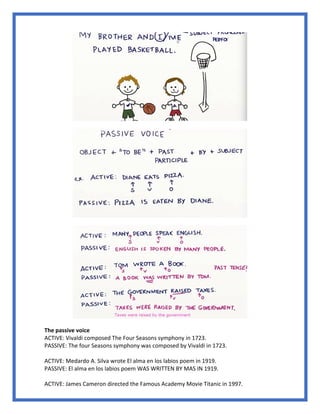 SUBJECT PRONOUNS
MY BROTHER AND (I)/ME
PLAYED BASKETBALL.
PASSIVE VOICE
OBJECT + "TO BE" + PAST + BY + SUBJECT
PARTICIPLE
ex. ACTIVE: DIANE EATS PIZZA.
S V O
PASSIVE: PIZZA IS EATEN BY DIANE.
ACTIVE: MANY PEOPLE SPEAK ENGLISH.
S V O
PASSIVE: ENGLISH IS SPOKEN BY MANY PEOPLE.
ACTIVE: TOM WROTE A BOOK. PAST TENSE!
S V O
PASSIVE: A BOOK WAS WRITTEN BY TOM.
ACTIVE: THE GOVERNMENT RAISED TAXES.
S V O
PASSIVE: TAXES WERE RAISED BY THE GOVERNMENT.
Taxes were raised by the government
The passive voice
ACTIVE: Vivaldi composed The Four Seasons symphony in 1723.
PASSIVE: The four Seasons symphony was composed by Vivaldi in 1723.
ACTIVE: Medardo A. Silva wrote El alma en los labios poem in 1919.
PASSIVE: El alma en los labios poem WAS WRITTEN BY MAS IN 1919.
ACTIVE: James Cameron directed the Famous Academy Movie Titanic in 1997.